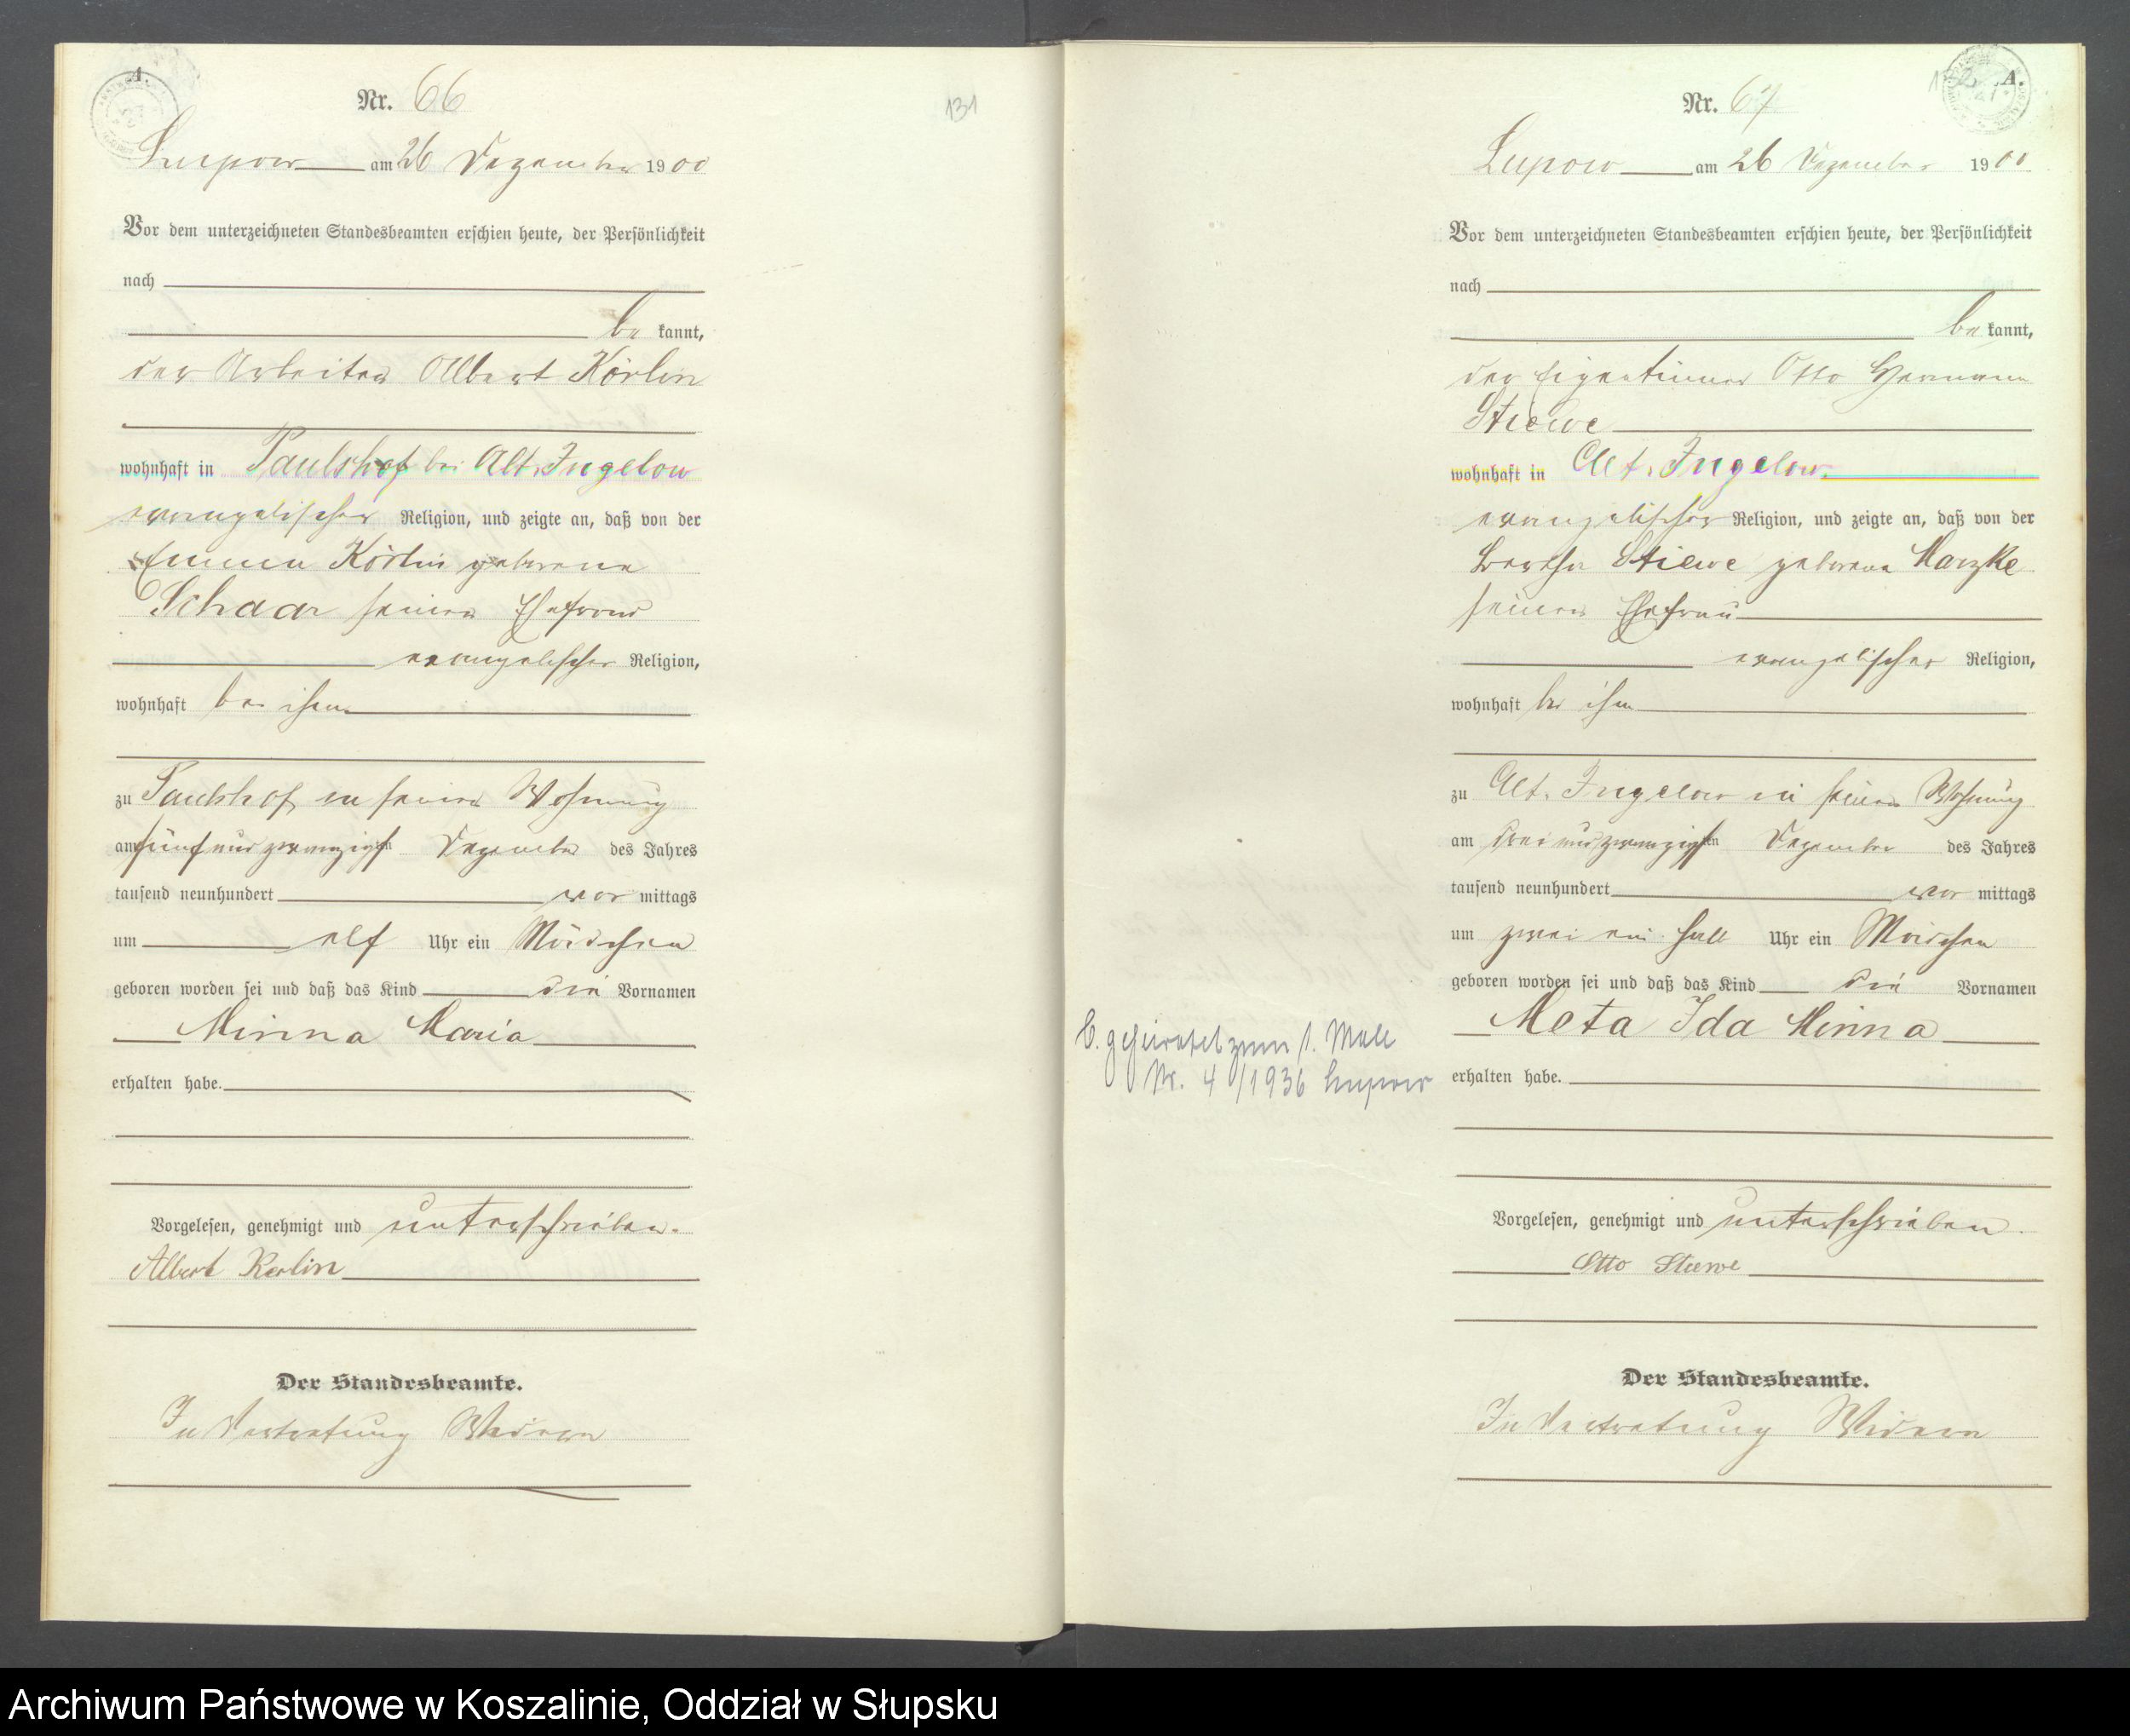 A.
Nr. 66
131
Lupow am 26 Dezember 1900
Vor dem unterzeichneten Standesbeamten erschien heute, der Persönlichkeit
nach
be kannt,
der Arbeiter Albert Körlin
wohnhaft in Paulshof bei Alt. Jugelow
evangelischer Religion, und zeigte an, daß von der
Emma Körlin geborene
Schaar seiner Ehefrau
evangelischer Religion,
wohnhaft bei ihm
zu Paulshof in seiner Wohnung
am fünf und zwanzigsten Dezember des Jahres
tausend neunhundert vor mittags
um elf Uhr ein Mädchen
geboren worden sei und daß das Kind die Vornamen
Minna Maria
erhalten habe.
Vorgelesen, genehmigt und unterschrieben.
Albert Kerlin
Der Standesbeamte.
In Vertretung
A.
Nr. 67
Lupow am 26 Dezember 1900
Vor dem unterzeichneten Standesbeamten erschien heute, der Persönlichkeit
nach
be kannt,
der Eigentümer Otto Hermann
Stiewe
wohnhaft in Alt. Jugelow
evangelischer Religion, und zeigte an, daß von der
Bertha Stiewe geborene Marzke
seiner Ehefrau
evangelischer Religion,
wohnhaft bei ihm
zu Alt. Jugelow in seiner Wohnung
am drei und zwanzigsten Dezember des Jahres
tausend neunhundert vor mittags
um zwei ein halb Uhr ein Mädchen
geboren worden sei und daß das Kind die Vornamen
Meta Ida Minna
erhalten habe.
geheiratet zum 1. Male
Nr. 4/1936 Lupow
Vorgelesen, genehmigt und unterschrieben.
Otto Stiewe
Der Standesbeamte.
In Vertretung
Archiwum Państwowe w Koszalinie, Oddział w Słupsku